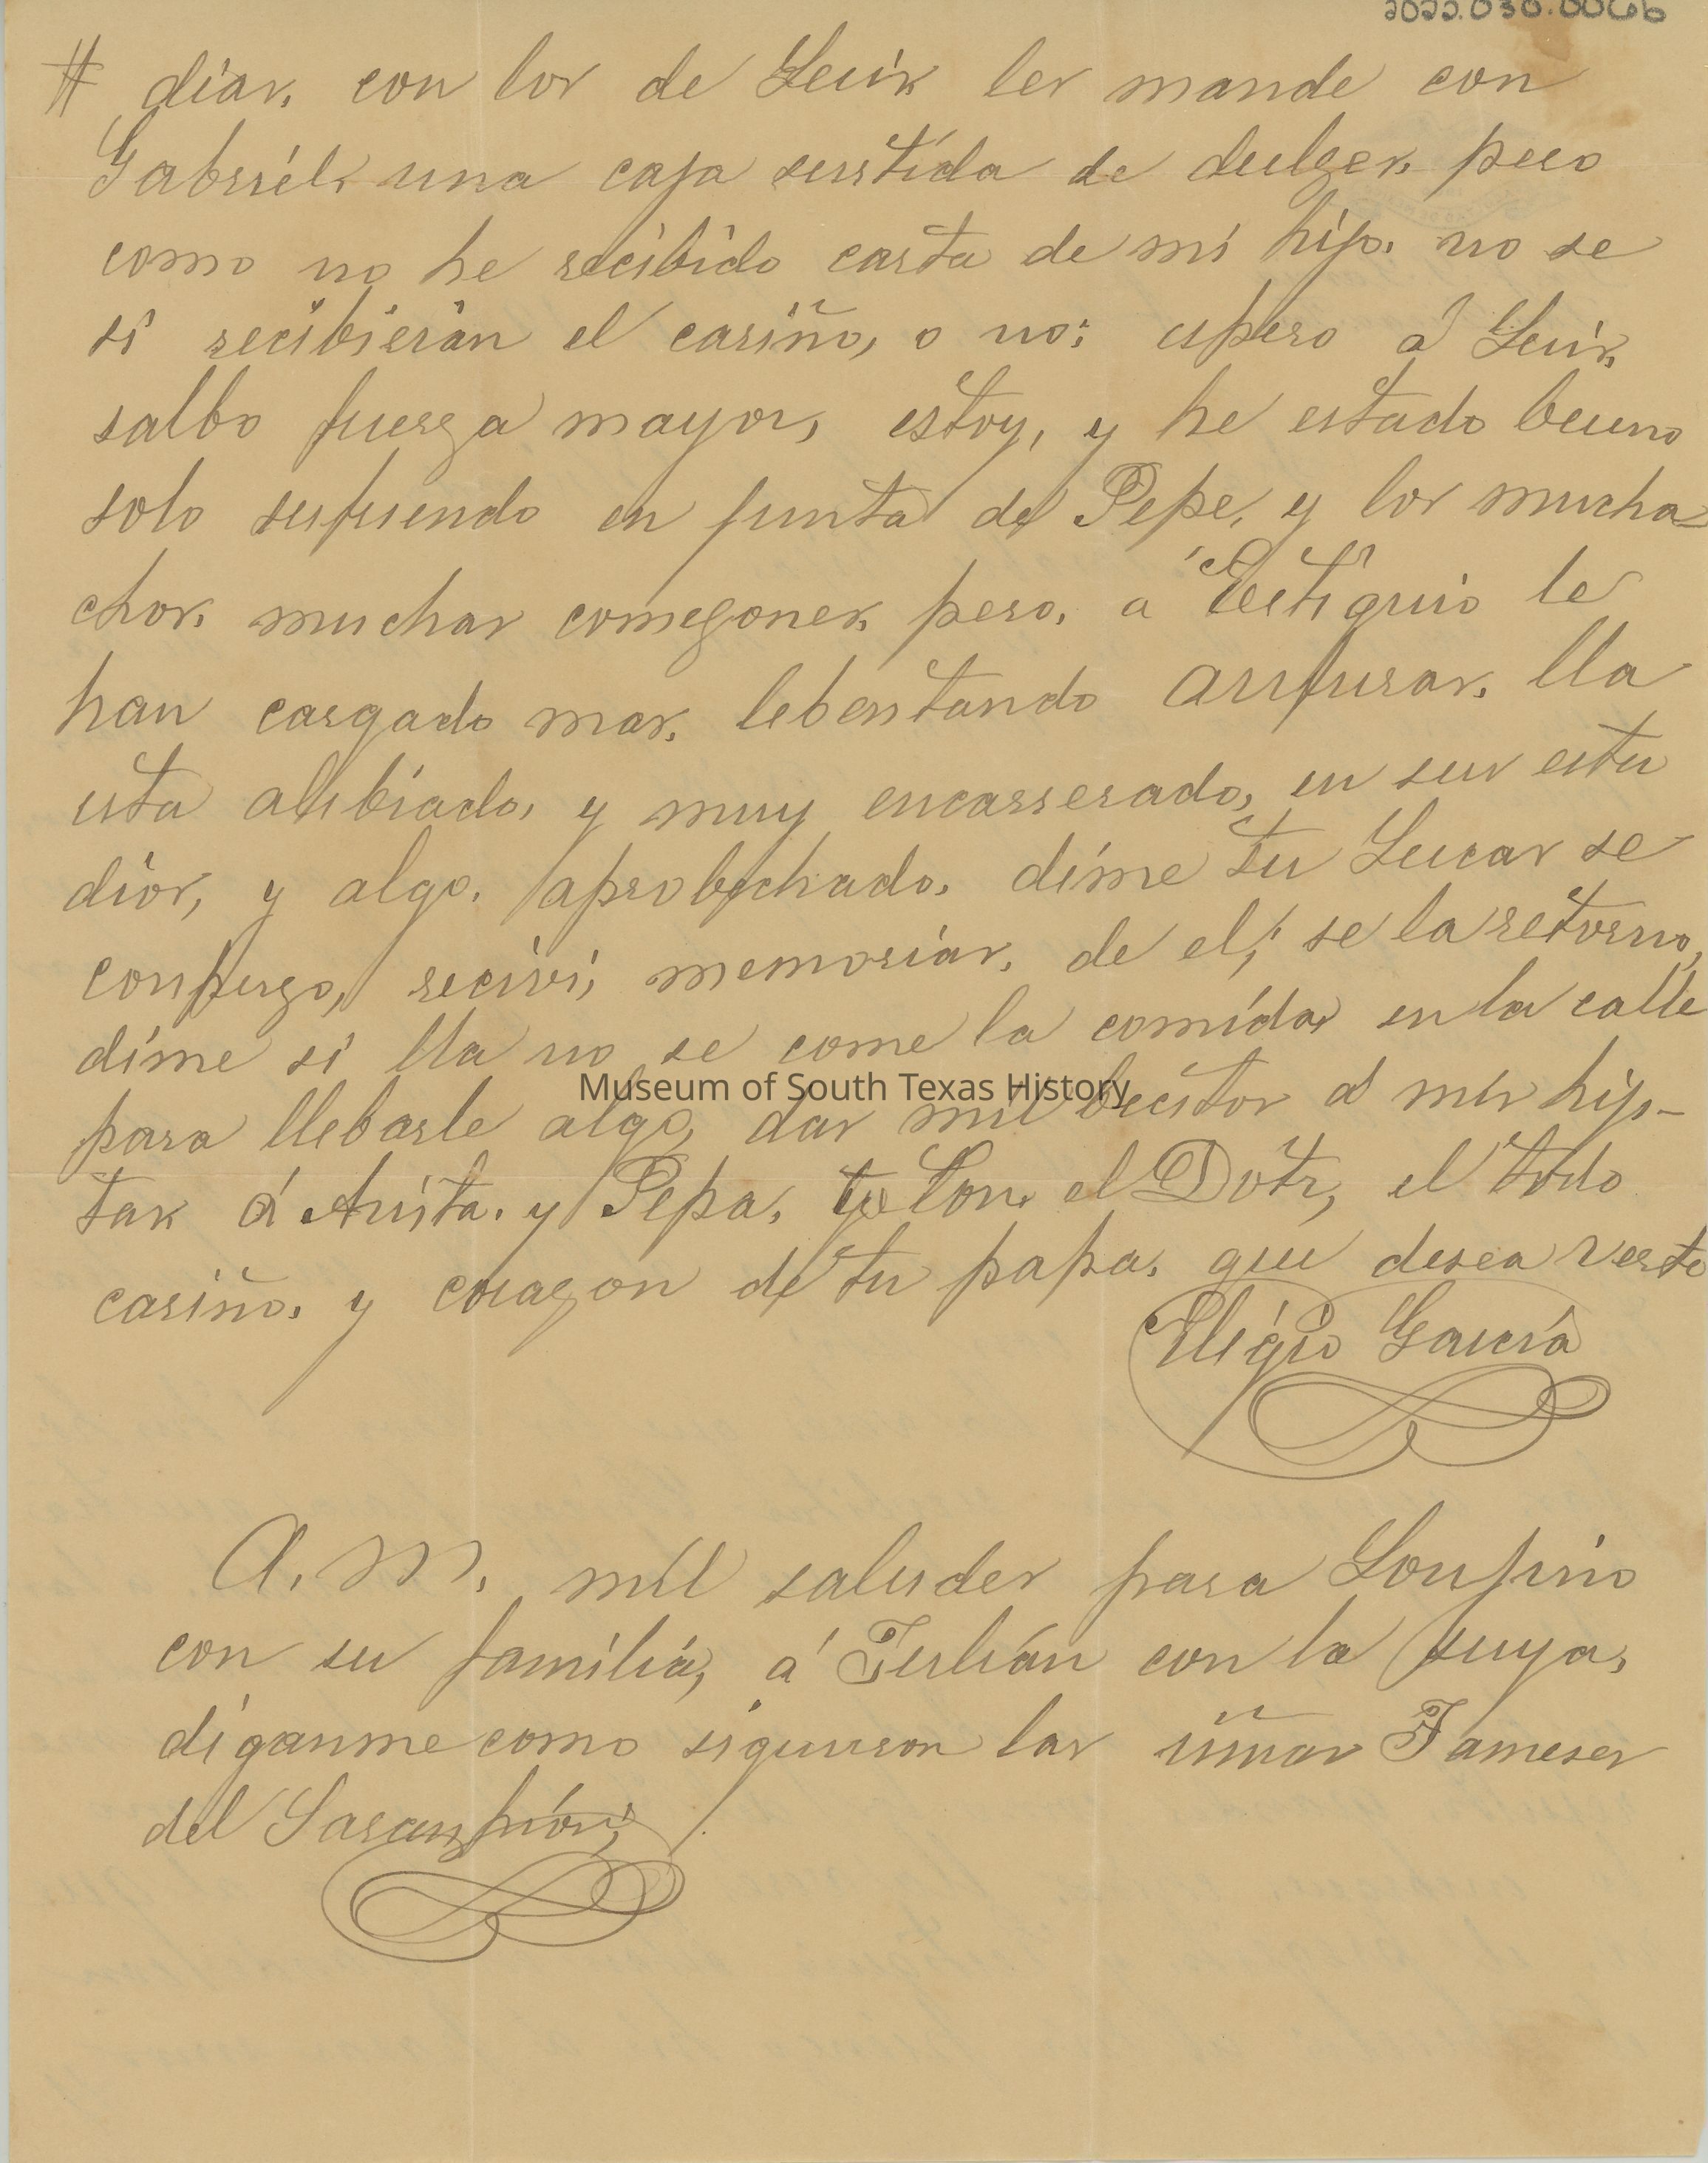 2022.030.006b
# dias, con los de Luis les mande con
Gabriél, una caja surtida de dulses, pero
como no he recibido carta de mi hijo, no se
si recibierán el cariño, o no; espero á Luis,
salbo fuerza mayor, estoy, y he estado bueno
solo sufriendo en junta de Pepe, y los mucha=
chos, muchas comezones, pero, a Eutiquio le
han cargado mas, lebentando las lla
esta alibiado, y muy encarrerado, en sus estu
dios, y algo, aprobechado, dime tu Lucas se
compuso, recivi, memorias, de el, se la retorno,
dime si lla no se come la comida, en la calle
para llebarle algo, das mil besitos a mis hiji-
tas á Anita, y Pepa, tu con el Dotr, el todo
cariño, y corazon de tu papa, que desea verte
Eligio García
A. M. mil saludes para
con su familiá, á Julián con la suya,
diganme como siguieron las niñas Jameses
del Saranpión;
Museum of South Texas History